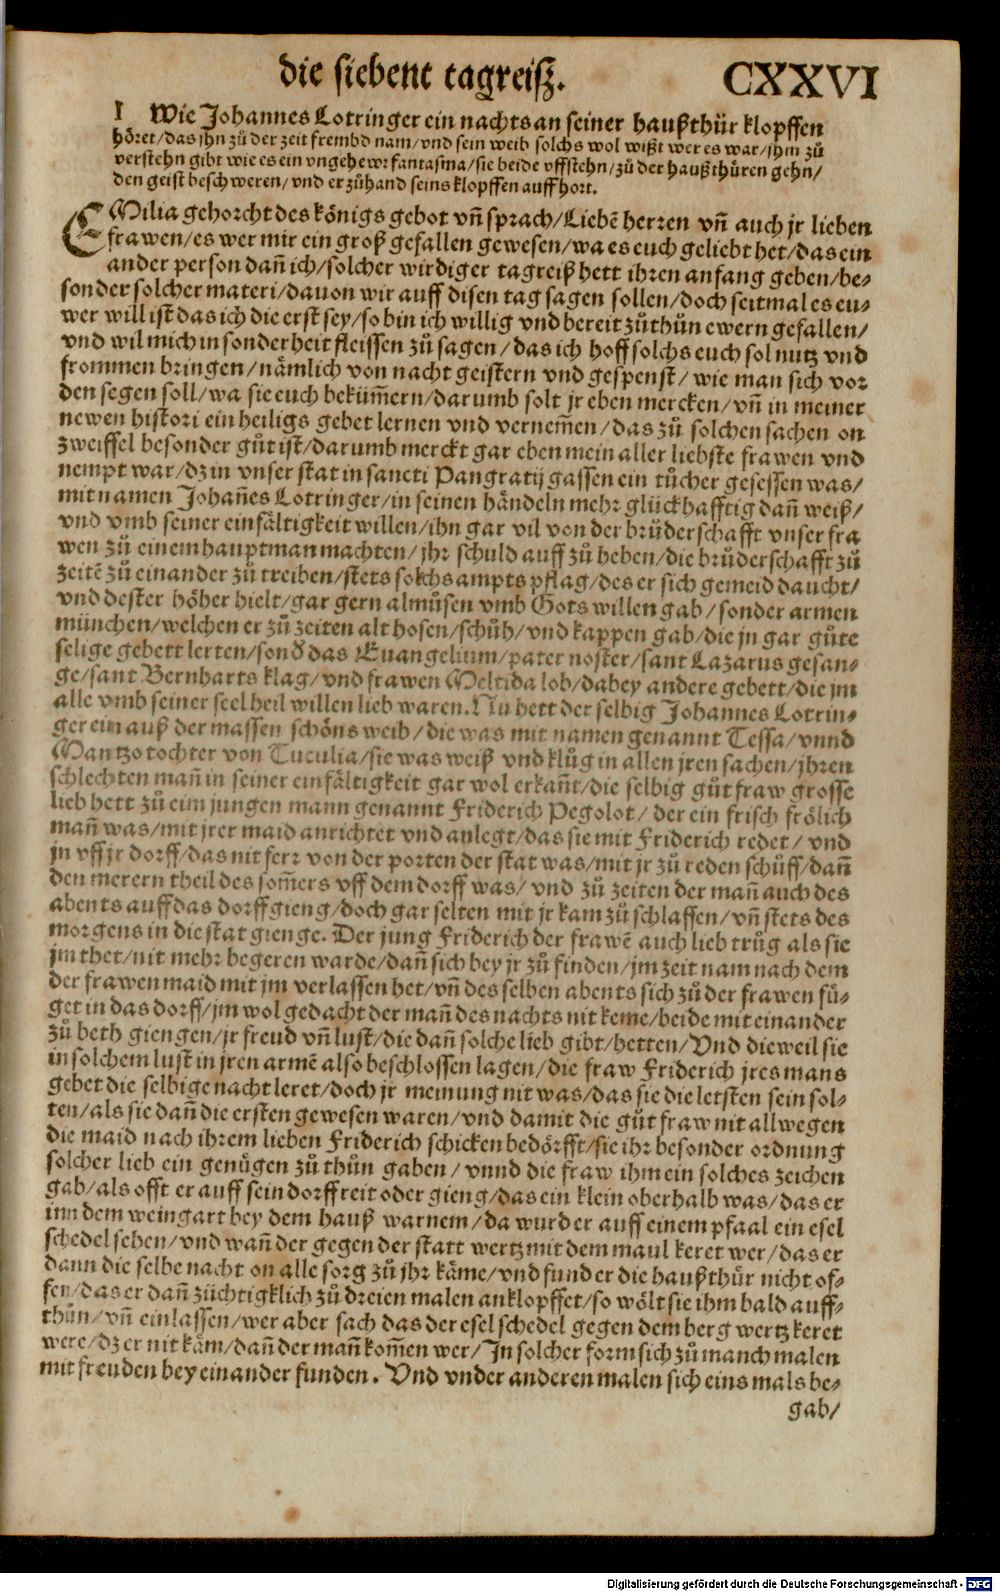 die siebent tagreisz.
CXXVI
1 Wie Johannes Lotringer ein nachts an seiner haußthür klopffen
höret/das jhn zů der zeit frembd nam/vnd sein weib solchs wol wißt wer es war/jhm zů
verstehn gibt wie es ein vngehewr fantasma/sie beide vffstehn/zů der haußthüren gehn/
den geist beschweren/vnd er zůhand seins klopffen auffhort.
EMilia gehorcht des königs gebot vñ sprach/Liebẽ herren vñ auch jr lieben
frawen/es wer mir ein groß gefallen gewesen/wa es euch geliebt het/das ein
ander person dañ ich/solcher wirdiger tagreiß hett ihren anfang geben/be-
sonder solcher materi/dauon wir auff disen tag sagen sollen/doch seitmal es eu-
wer will ist das ich die erst sey/so bin ich willig vnd bereit zůthůn ewern gefallen/
vnd wil mich in sonderheit fleissen zů sagen/das ich hoff solchs euch sol nutz vnd
frommen bringen/nämlich von nacht geistern vnd gespenst/wie man sich vor
den segen soll/wa sie euch bekům̃ern/darumb solt jr eben mercken/vñ in meiner
newen histori ein heiligs gebet lernen vnd vernem̃en/das zů solchen sachen on
zweiffel besonder gůt ist/darumb merckt gar eben mein aller liebste frawen vnd
nempt war/dz in vnser stat in sancti Pangratij gassen ein tůcher gesessen was/
mit namen Johañes Lotringer/in seinen händeln mehr glückhafftig dañ weiß/
vnd vmb seiner einfältigkeit willen/ihn gar vil von der brůderschafft vnser fra
wen zů einem hauptman machten/jhr schuld auff zů heben/die brůderschafft zů
zeitẽ zů einander zů treiben/stets solchs ampts pflag/des er sich gemeid daucht/
vnd dester höher hielt/gar gern almůsen vmb Gots willen gab/sonder armen
münchen/welchen er zů zeiten alt hosen/schůh/vnd kappen gab/die jn gar gůte
selige gebett lerten/sonđ das Euangelium/pater noster/sant Lazarus gesan-
ge/sant Bernharts klag/vnd frawen Meltida lob/dabey andere gebett/die jm
alle vmb seiner seel heil willen lieb waren. Nu hett der selbig Johannes Lotrin-
ger ein auß der massen schöns weib/die was mit namen genannt Tessa/vnnd
Mantzo tochter von Tuculia/sie was weiß vnd klůg in allen jren sachen/jhren
schlechten mañ in seiner einfältigkeit gar wol erkañt/die selbig gůt fraw grosse
lieb hett zů eim jungen mann genannt Friderich Pegolot/der ein frisch frölich
mañ was/mit jrer maid anrichtet vnd anlegt/das sie mit Friderich redet/vnd
jn vff jr dorff/das nit ferr von der porten der stat was/mit jr zů reden schůff/dañ
den merern theil des som̃ers vff dem dorff was/vnd zů zeiten der mañ auch des
abents auff das dorff gieng/doch gar selten mit jr kam zů schlaffen/vñ stets des
morgens in die stat gienge. Der jung Friderich der frawẽ auch lieb trůg als sie
jm thet/nit mehr begeren warde/dañ sich bey jr zů finden/jm zeit nam nach dem
der frawen maid mit jm verlassen het/vñ des selben abents sich zů der frawen fů-
get in das dorff/jm wol gedacht der mañ des nachts nit keme/beide mit einander
zů beth giengen/jr freud vñ lust/die dañ solche lieb gibt/hetten/Vnd die weil sie
in solchem lust in jren armẽ also beschlossen lagen/die fraw Friderich jres mans
gebet die selbige nacht leret/doch jr meinung nit was/das sie die letsten sein sol-
ten/als sie dañ die ersten gewesen waren/vnd damit die gůt fraw nit allwegen
die maid nach ihrem lieben Friderich schicken bedörfft/sie ihr besonder ordnung
solcher lieb ein genůgen zů thůn gaben/vnnd die fraw ihm ein solches zeichen
gab/als offt er auff sein dorff reit oder gieng/das ein klein oberhalb was/das er
inn dem weingart bey dem hauß warnem/da wurd er auff einem pfaal ein esel
schedel sehen/vnd wañ der gegen der statt wertz mit dem maul keret wer/das er
dann die selbe nacht on alle sorg zů jhr käme/vnd fund er die haußthür nicht of-
fen/das er dañ züchtigklich zů dreien malen anklopffet/so wölt sie ihm bald auff-
thůn/vñ einlassen/wer aber sach das der esel schedel gegen dem berg wertz keret
were/dz er nit käm/dañ der mañ kom̃en wer/In solcher form sich zů manch malen
mit freuden bey einander funden. Vnd vnder anderen malen sich eins mals be-
gab/
Digitalisierung gefördert durch die Deutsche Forschungsgemeinschaft - DFG